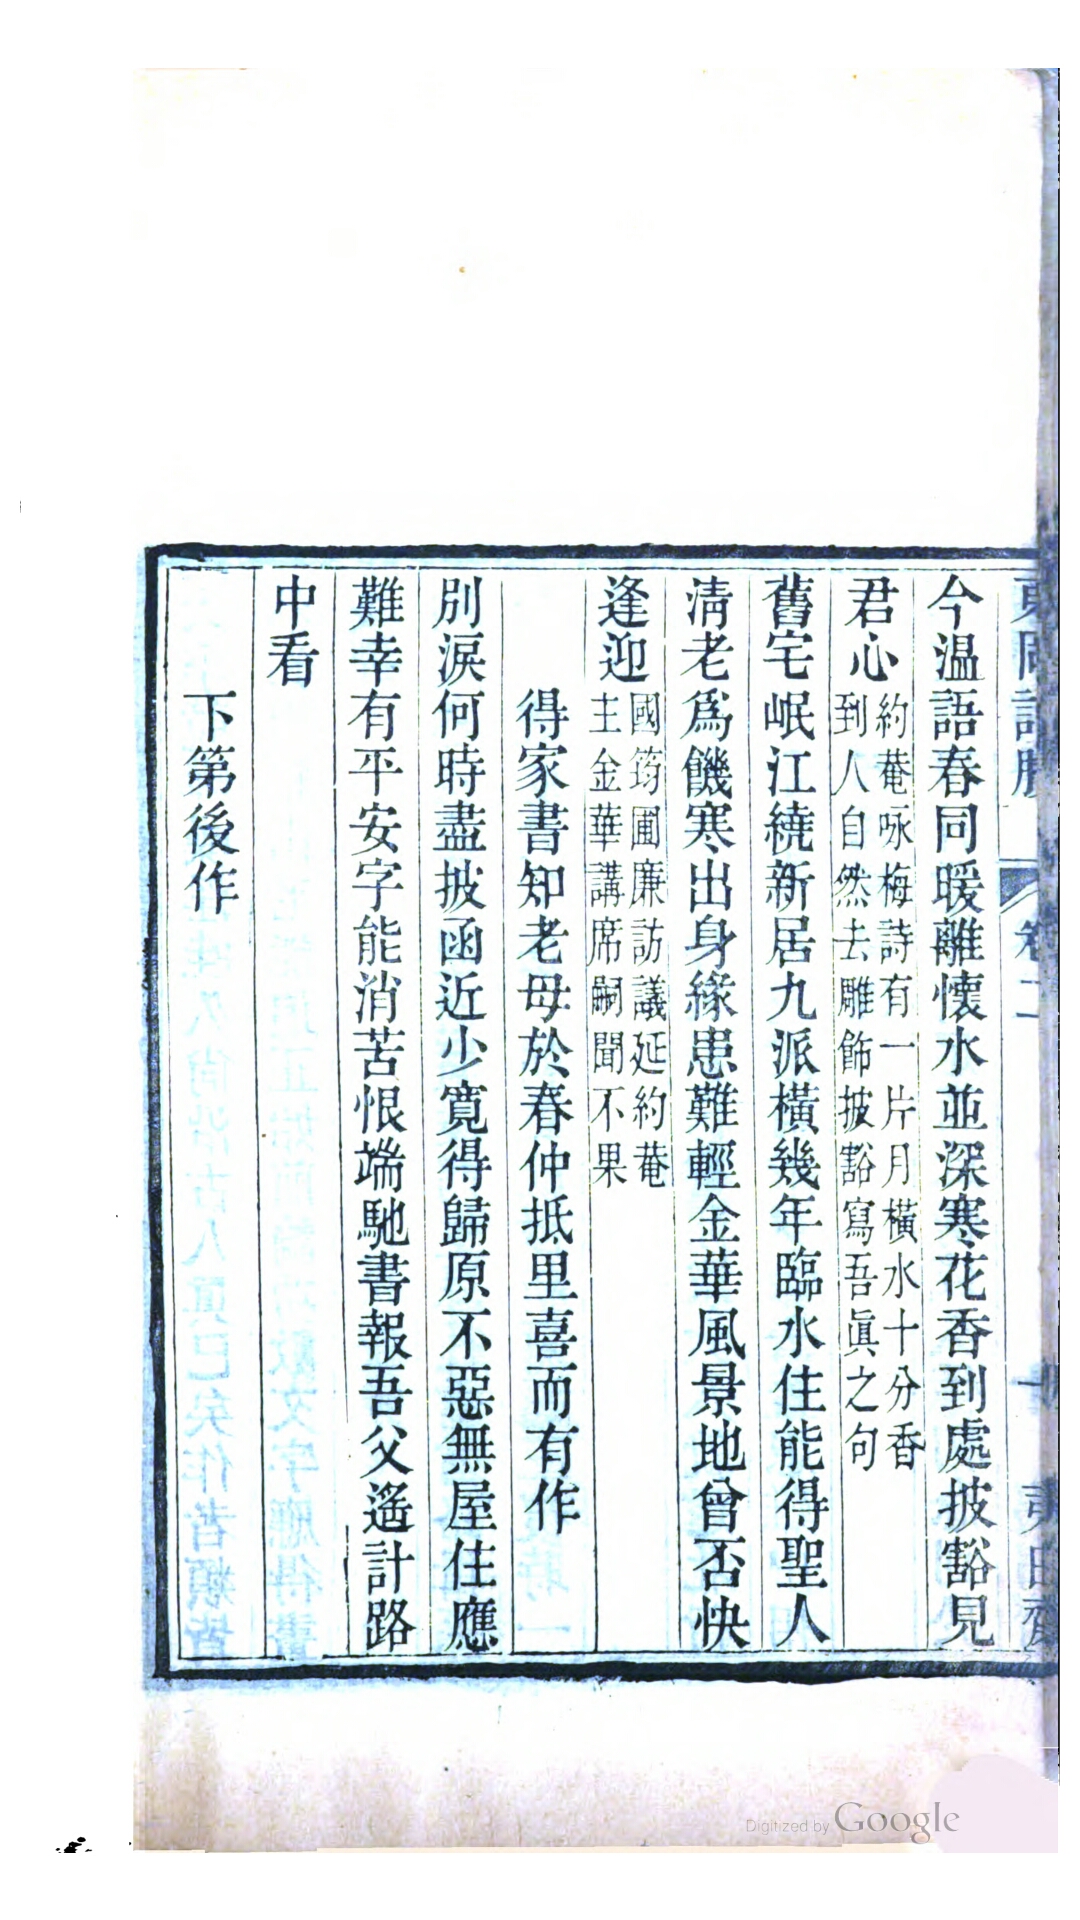 卷二
今温語春同暖離懷水並深寒花香到處披豁見
君心
約菴咏梅詩有一片月橫水十分香
到人自然去雕飾披豁寫吾眞之句
舊宅岷江繞新居九派橫幾年臨水住能得聖人
清老爲饑寒出身緣患難輕金華風景地曾否快
逢迎
國筠圃廉訪議延約菴
主金華講席嗣聞不果
得家書知老母於春仲抵里喜而有作
別淚何時盡披函近少寛得歸原不惡無屋住應
難幸有平安字能消苦恨端馳書報吾父遙計路
中看
下第後作
Digitized by Google